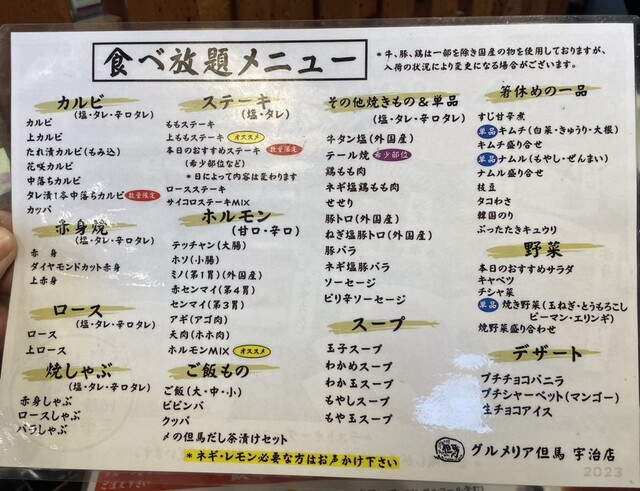 食べ放題メニュー
*牛、豚、鶏は一部を除き国産の物を使用しておりますが、
入荷の状況により変更になる場合がございます。
カルビ
(塩・タレ・辛口タレ)
カルビ
上カルビ
たれ漬カルビ(もみ込)
花咲カルビ
中落ちカルビ
タレ漬1本中落ちカルビ 数量限定
カッパ
赤身焼
(塩・タレ・辛口タレ)
赤身
ダイヤモンドカット赤身
上赤身
ロース
(塩・タレ・辛口タレ)
ロース
上ロース
焼しゃぶ
(塩・タレ・辛口タレ)
赤身しゃぶ
ロースしゃぶ
バラしゃぶ
ステーキ
(塩・タレ)
ももステーキ
上ももステーキ オススメ
本日のおすすめステーキ 数量限定
(希少部位など)
*日によって内容は変わります
ロースステーキ
サイコロステーキMIX
ホルモン
(甘口・辛口)
テッチャン(大腸)
ホソ(小腸)
ミノ(第1胃)(外国産)
赤センマイ(第4胃)
センマイ(第3胃)
アギ(アゴ肉)
天肉(ホホ肉)
ホルモンMIX オススメ
ご飯もの
ご飯(大・中・小)
ビビンバ
クッパ
〆の但馬だし茶漬けセット
その他焼きもの&単品
(塩・タレ・辛口タレ)
牛タン塩(外国産)
テール焼 希少部位
鶏もも肉
ネギ塩鶏もも肉
せせり
豚トロ(外国産)
ねぎ塩豚トロ(外国産)
豚バラ
ネギ塩豚バラ
ソーセージ
ピリ辛ソーセージ
スープ
玉子スープ
わかめスープ
わか玉スープ
もやしスープ
もや玉スープ
箸休めの一品
すじ甘辛煮
単品 キムチ(白菜・きゅうり・大根)
キムチ盛り合せ
単品 ナムル(もやし・ぜんまい)
ナムル盛り合せ
枝豆
タコわさ
韓国のり
ぶったたきキュウリ
野菜
本日のおすすめサラダ
キャベツ
チシャ菜
単品 焼き野菜(玉ねぎ・とうもろこし
ピーマン・エリンギ)
焼野菜盛り合わせ
デザート
プチチョコバニラ
プチシャーベット(マンゴー)
生チョコアイス
*ネギ・レモン必要な方はお声かけ下さい
グルメリア但馬 宇治店
2023